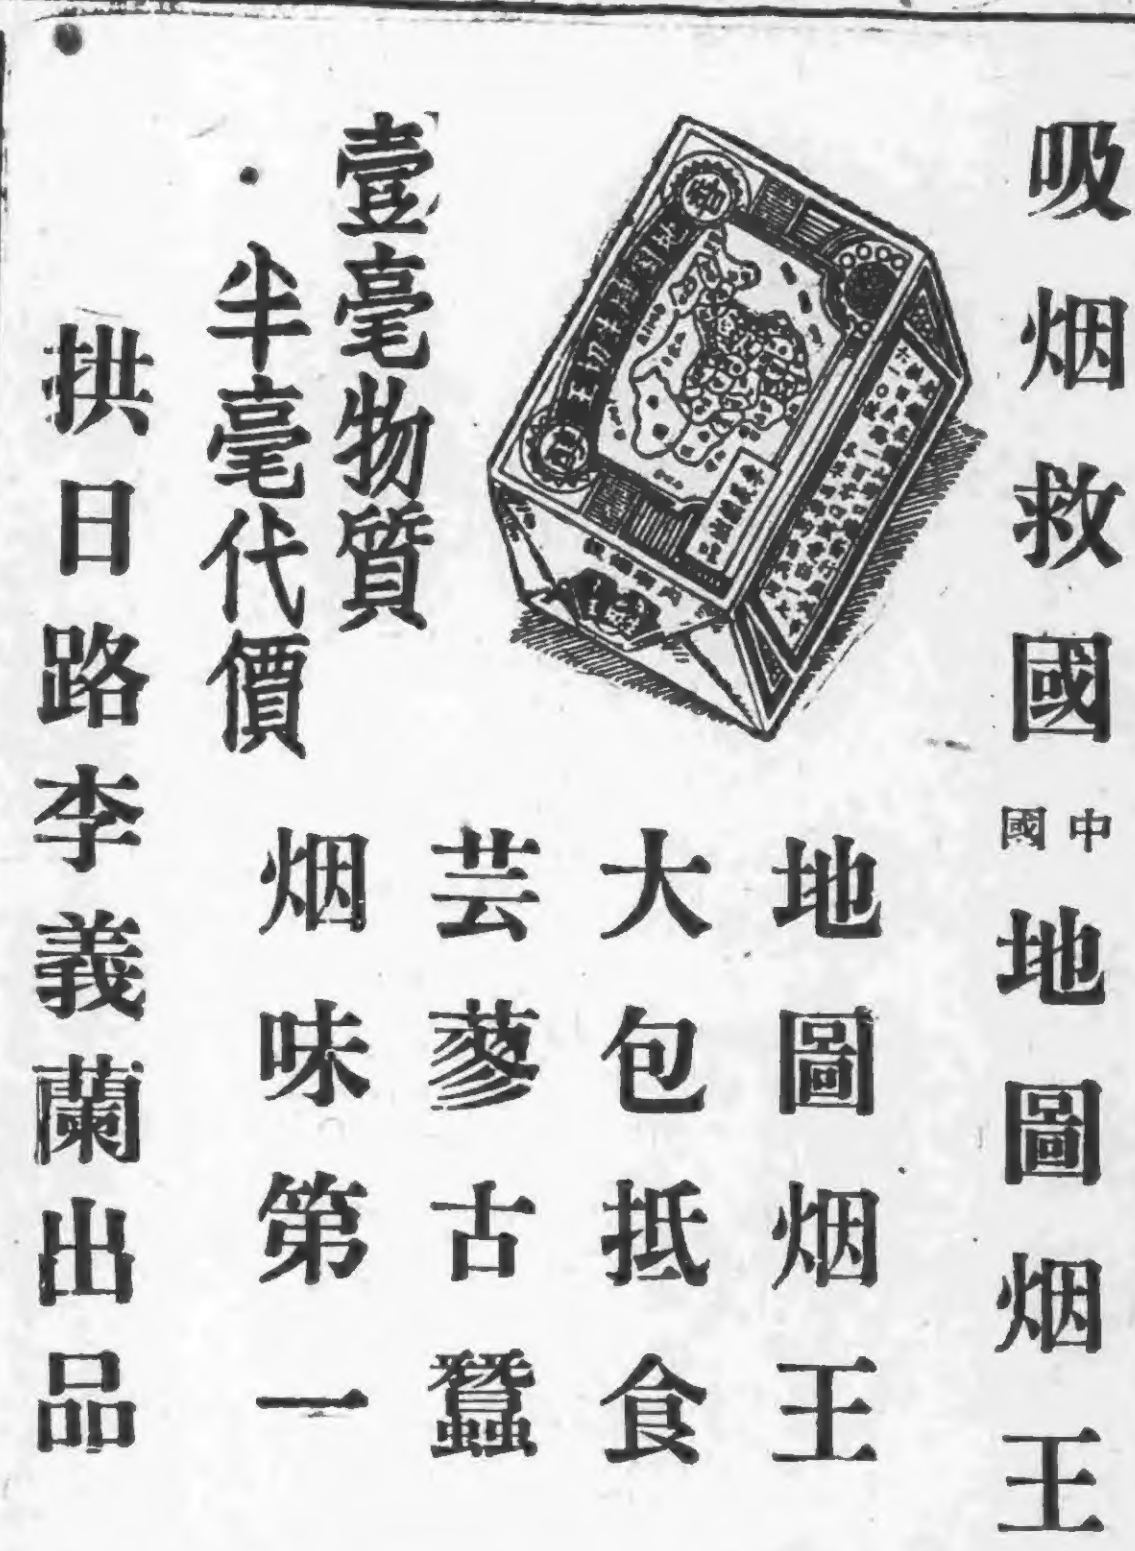 吸烟救國中國地圖烟王
地圖烟王
大包抵食
芸蓼古蠶
烟味第一
壹毫物質
半毫代價
拱日路李義蘭出品